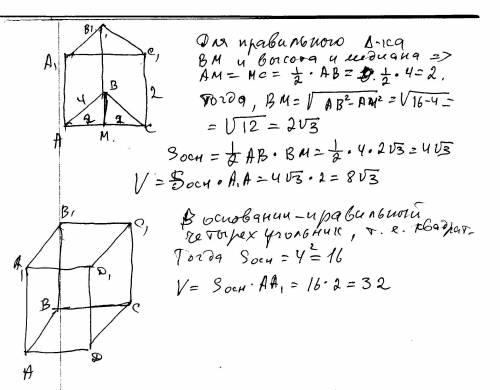 B₁
A₁
C₁
B
4
2
2
2
A
M
C
Для правильного Δ-ка
BM и высота и медиана =>
AM = MC = 1/2 · AB = 1/2 · 4 = 2.
Тогда, BM = √(AB² - AM²) = √(16-4) =
= √12 = 2√3
Sосн = 1/2 AB · BM = 1/2 · 4 · 2√3 = 4√3
V = Sосн · A₁A = 4√3 · 2 = 8√3
В основании - правильный
четырехугольник, т.е. квадрат.
Тогда Sосн = 4² = 16
V = Sосн · AA₁ = 16 · 2 = 32
B₁
C₁
A₁
D₁
B
C
A
D